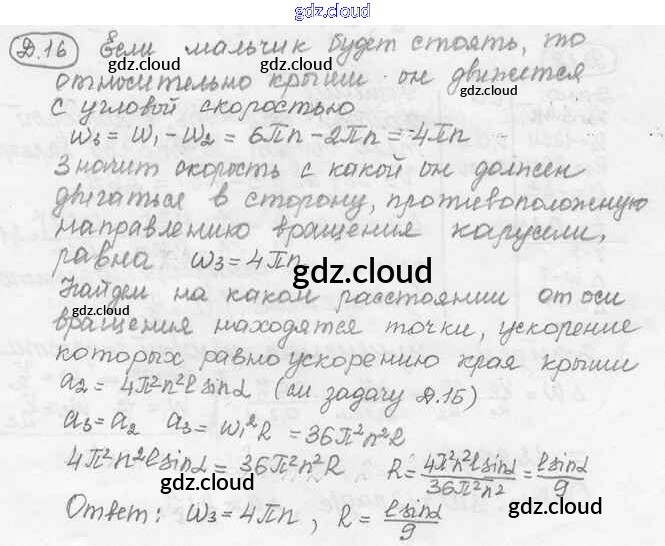 gdz.cloud
Д.16 Если мальчик будет стоять, то
gdz.cloud
относительно крыши он движется
gdz.cloud
с угловой скоростью
ω₃ = ω₁ - ω₂ = 6πn - 2πn = 4πn
Значит скорость с какой он должен
двигаться в сторону, противоположную
направлению вращения карусели,
равна ω₃ = 4πn
gdz.cloud
Найдем на каком расстоянии от оси
gdz.cloud
вращения находятся точки, ускорение
которых равно ускорению края крыши
a₂ = 4π²n²l sinα (см задачу Д.15)
a₃ = a₂ a₃ = ω₁²R = 36π²n²R
gdz.cloud
4π²n²l sinα = 36π²n²R R = 4π²n²l sinα / 36π²n² = l sinα / 9
gdz.cloud
Ответ: ω₃ = 4πn, R = l sinα / 9
gdz.cloud